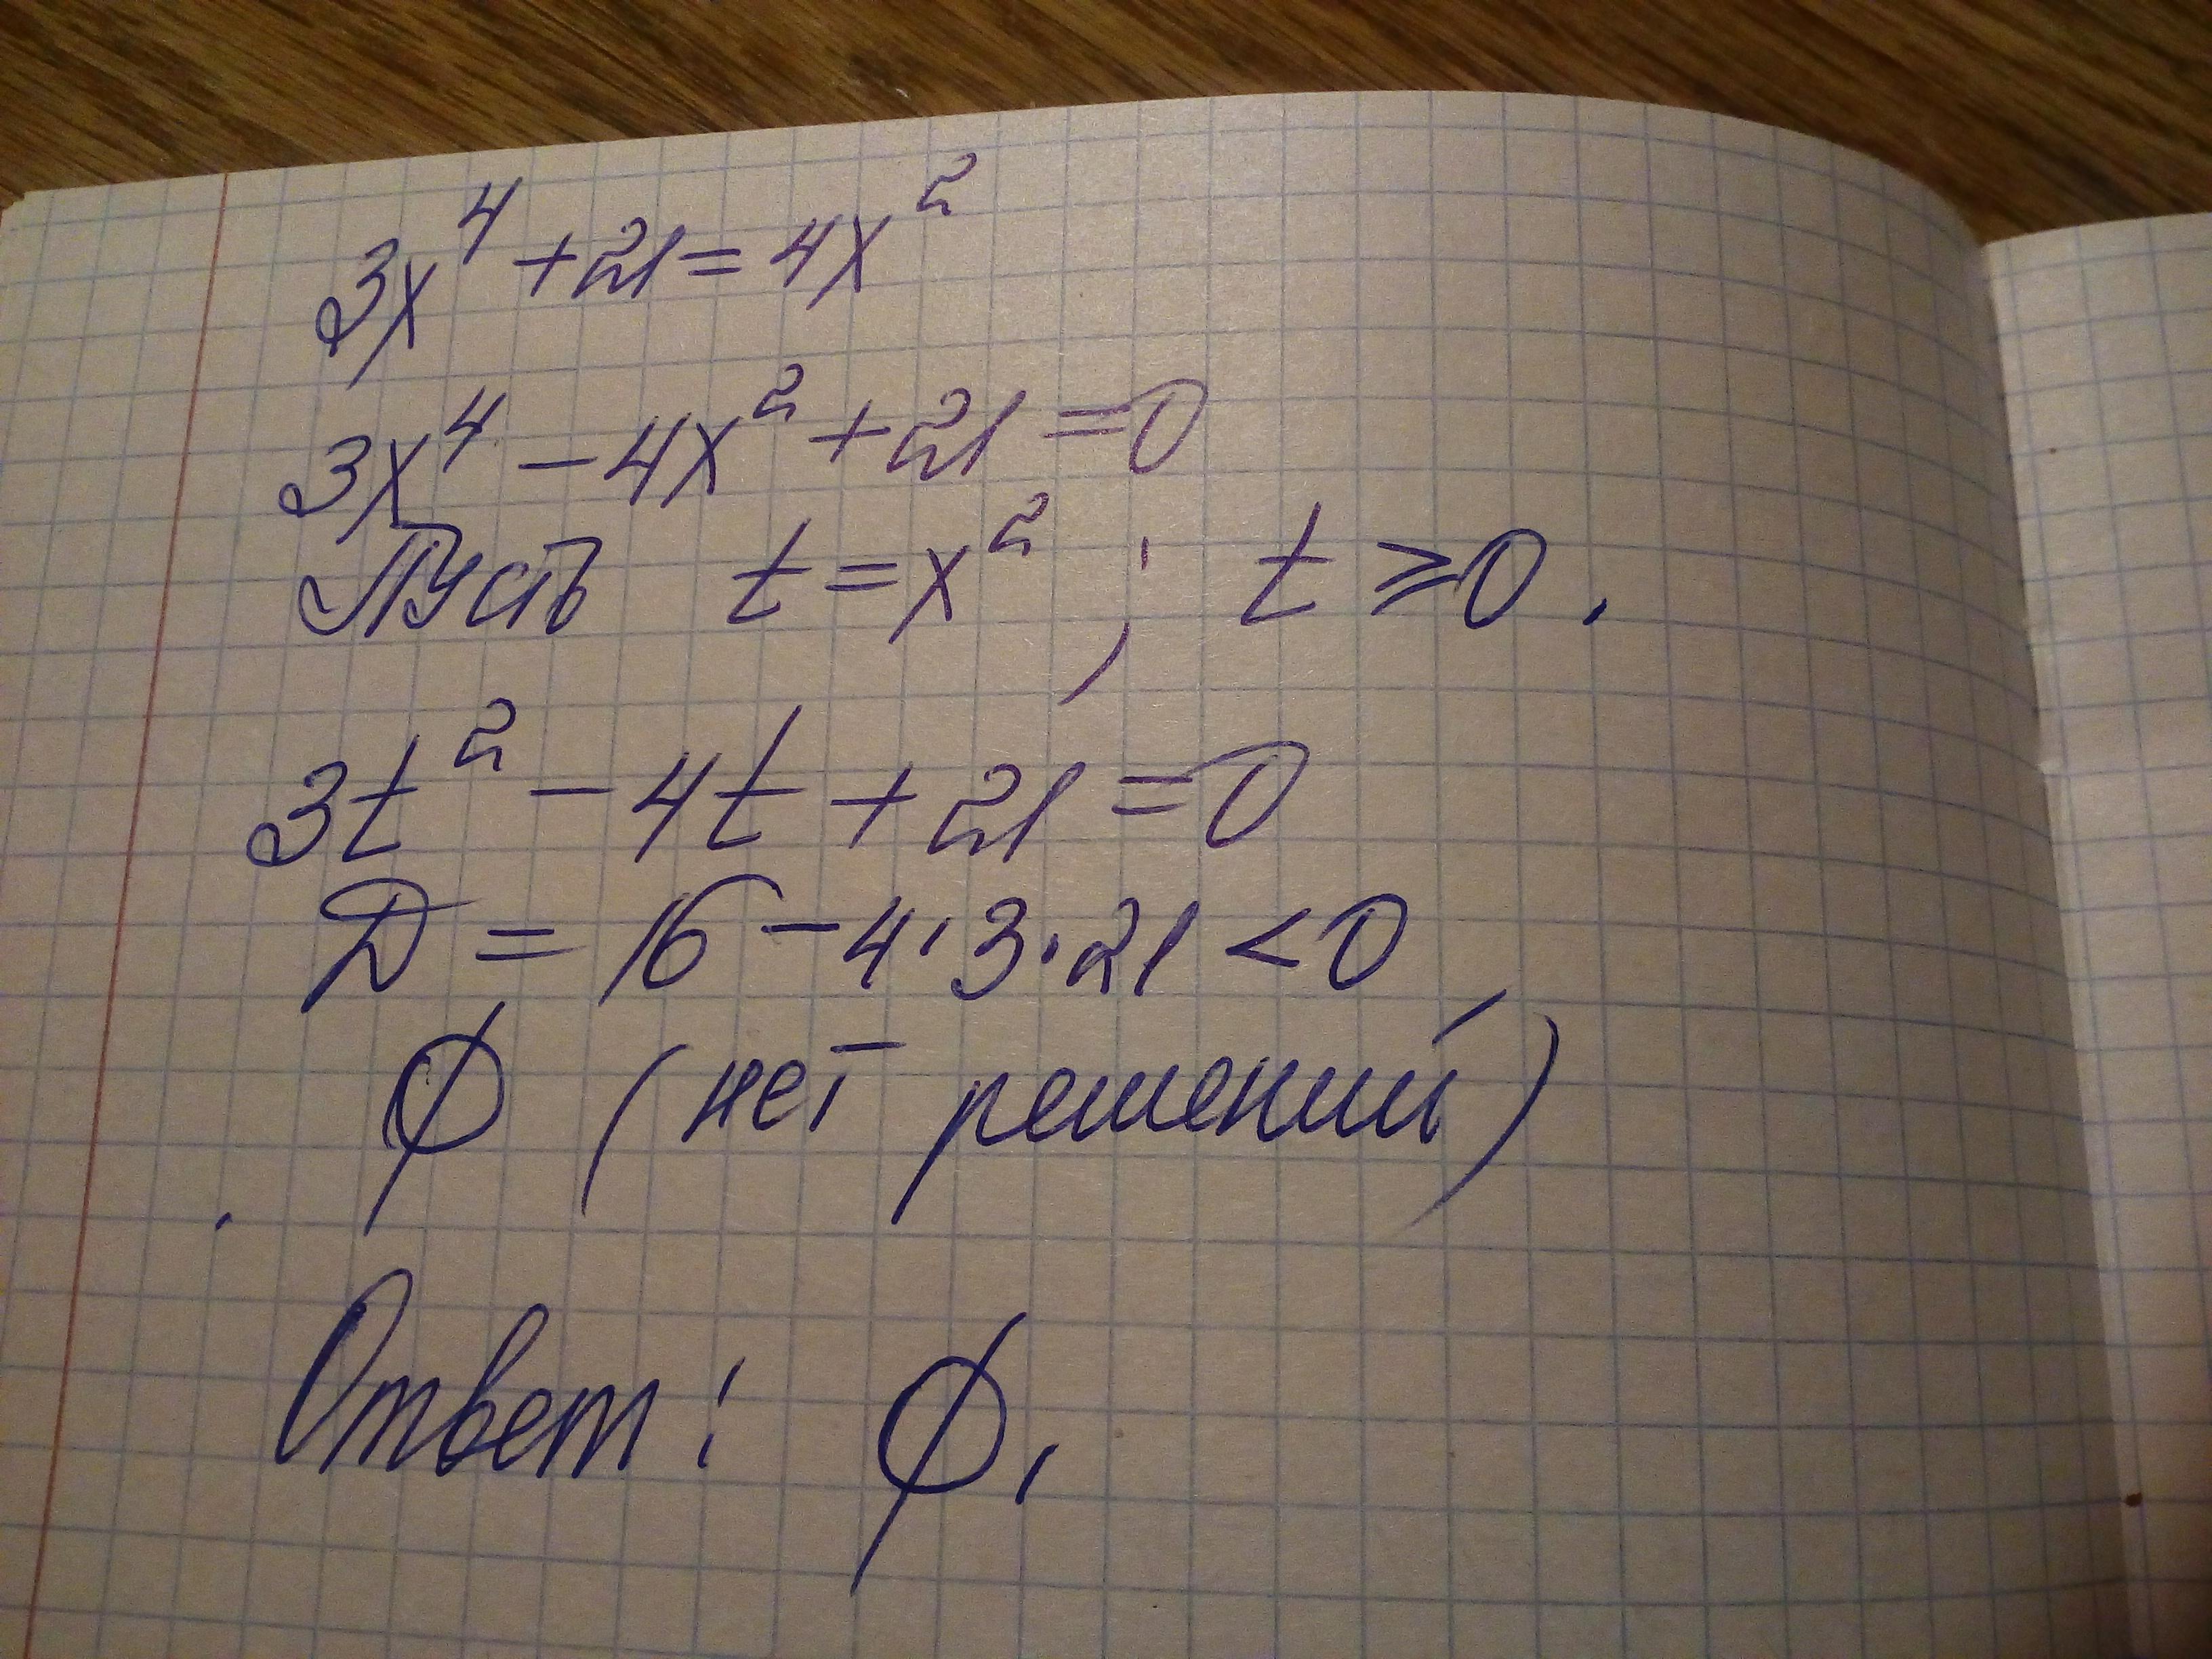 3x⁴ + 21 = 4x²
3x⁴ - 4x² + 21 = 0
Пусть t = x² ; t ⩾ 0 .
3t² - 4t + 21 = 0
D = 16 - 4·3·21 < 0
∅ (нет решений)
Ответ: ∅.